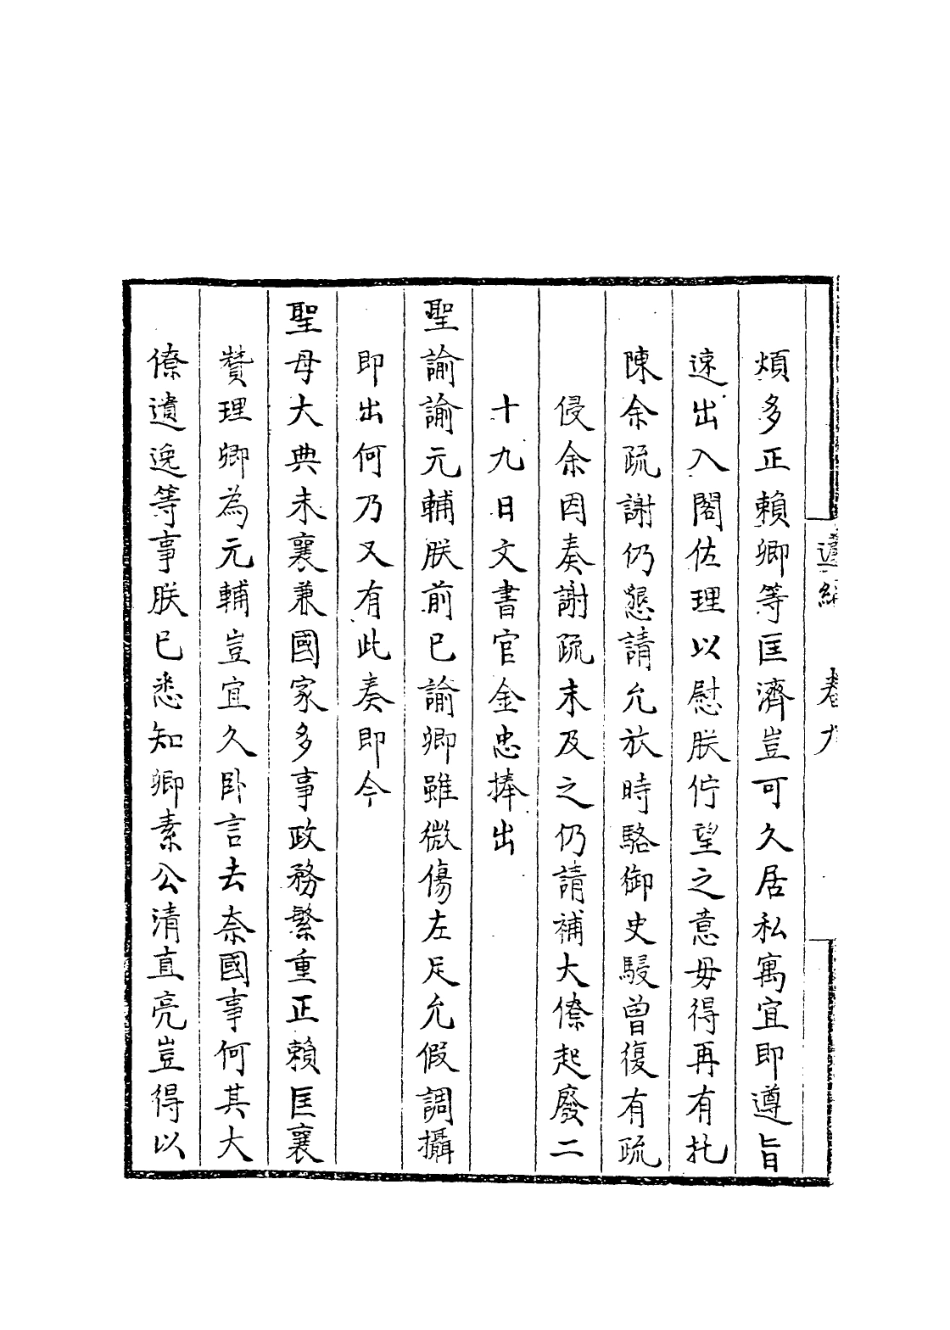 煩多正賴卿等匡濟豈可久居私寓宜即遵旨
速出入閣佐理以慰朕佇望之意毋得再有托
陳余疏謝仍懇請允放時駱御史騣曾復有疏
侵余因奏謝疏末及之仍請補大僚起廢二
十九日文書官金忠捧出
聖諭諭元輔朕前已諭卿雖微傷左足允假調攝
即出何乃又有此奏即今
聖母大典未襄兼國家多事政務繁重正賴匡襄
贊理卿為元輔豈宜久臥言去奈國事何其大
僚遺逸等事朕已悉知卿素公清直亮豈得以
蘧編 卷九